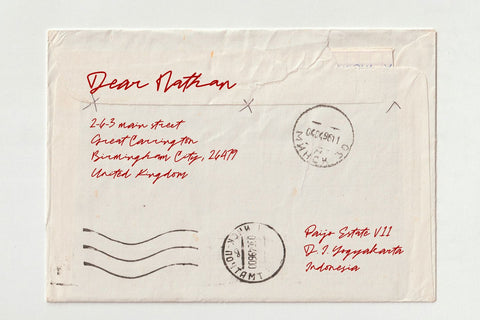 Dear Nathan
2-6-3 main street
Great Carrington
Birmingham City, 26479
United Kingdom
МИНСК
Paijo Estate VII
D. I. Yogyakarta
Indonesia